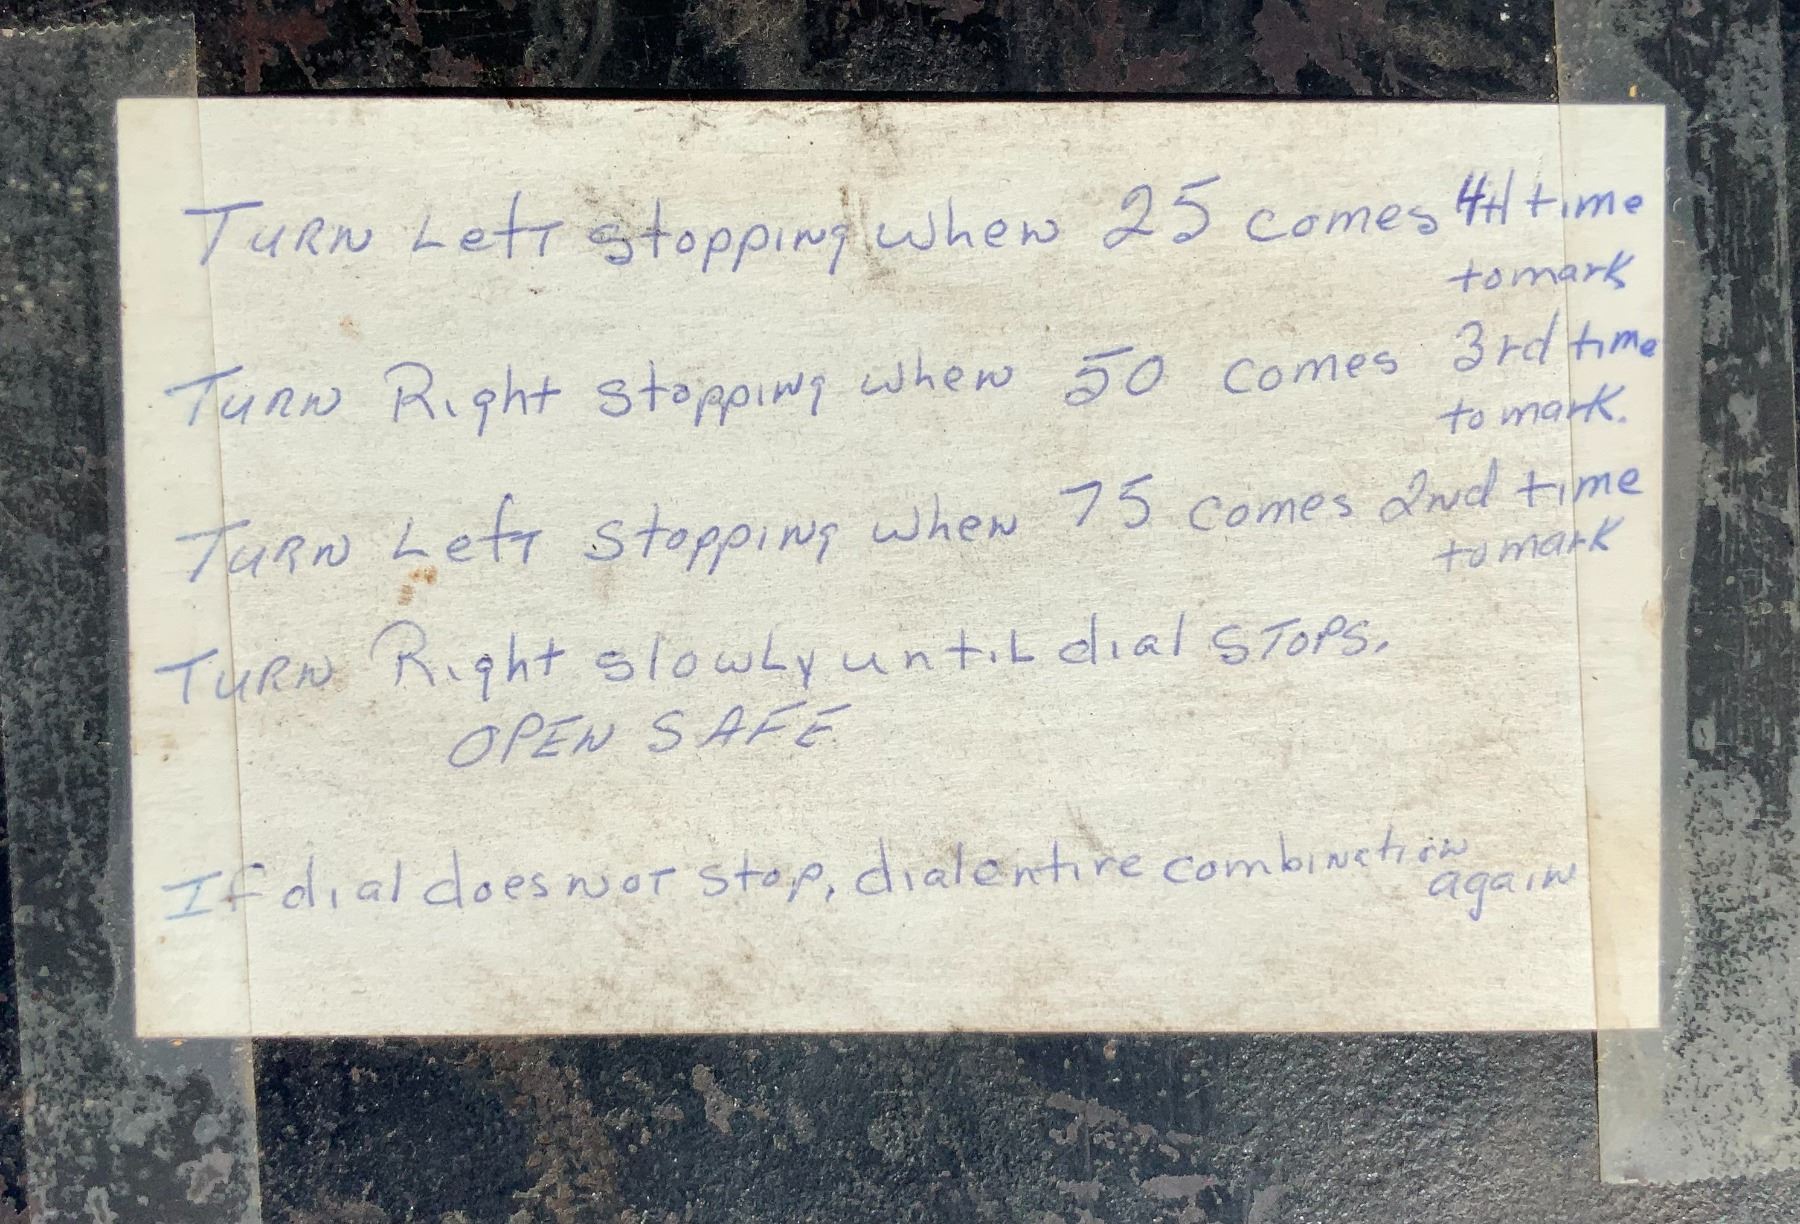 TURN Left stopping when 25 comes 4th time
to mark
TURN Right stopping when 50 comes 3rd time
to mark.
TURN Left stopping when 75 comes 2nd time
to mark
TURN Right slowly until dial STOPS.
OPEN SAFE
If dial does not stop, dial entire combination
again